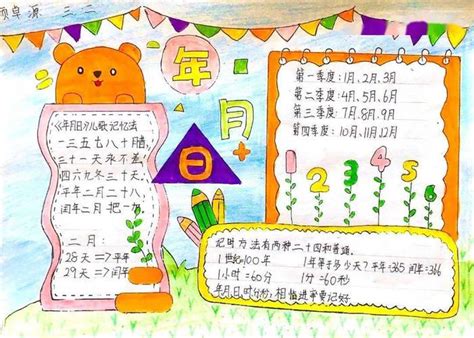 源 三、二
年
月
日
《年月日》儿歌记忆法
一三五七八十腊,
三十一天永不差,
四六九冬三十天,
平年二月二十八,
闰年二月把一加
二月:
28天=>平年
29天=>闰年
第一季度:1月、2月、3月
第二季度:4月、5月、6月
第三季度:7月、8月、9月
第四季度:10月、11月、12月
1 2 3 4 5 6
记时方法有两种二十四和普通。
1世纪=100年 1年等于多少天?平年=365 闰年=366
1小时=60分 1分=60秒
年月日时分秒,相临进率要记好